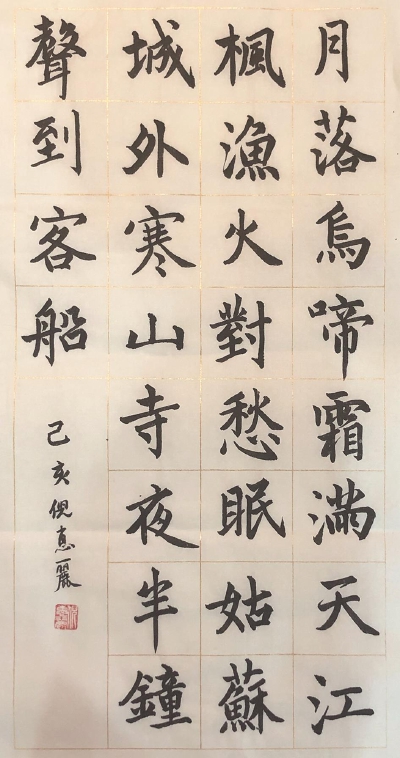 月落烏啼霜滿天江
楓漁火對愁眠姑蘇
城外寒山寺夜半鐘
聲到客船
己亥倪惠麗